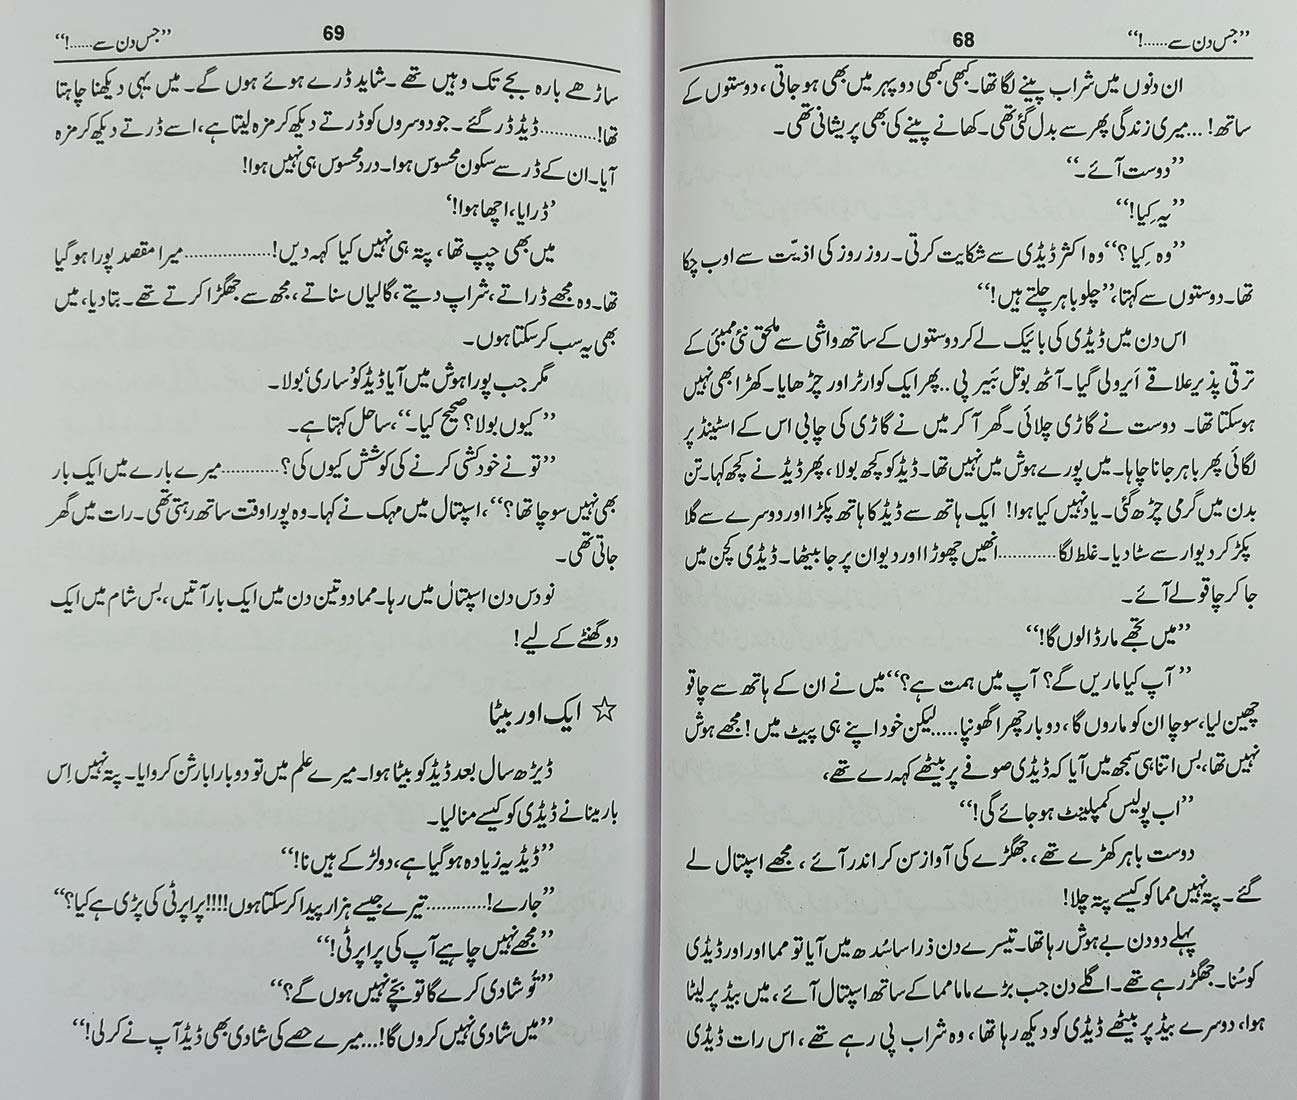 ”جس دن سے......!“
68
ان دنوں میں شراب پینے لگا تھا۔ کبھی کبھی دوپہر میں بھی ہو جاتی، دوستوں کے
ساتھ! ...میری زندگی پھر سے بدل گئی تھی۔ کھانے پینے کی بھی پریشانی تھی۔
”دوست آئے۔“
”یہ کیا!“
”وہ کیا؟“ وہ اکثر ڈیڈی سے شکایت کرتی۔ روز روز کی اذیّت سے اوب چکا
تھا۔ دوستوں سے کہتا، ”چلو باہر چلتے ہیں!“
اس دن میں ڈیڈی کی بائیک لے کر دوستوں کے ساتھ واشی سے ملحق نئی ممبئی کے
ترقی پذیر علاقے اَیرولی گیا۔ آٹھ بوتل بئیر پی.. پھر ایک کوارٹر اور چڑھایا۔ کھڑا بھی نہیں
ہو سکتا تھا۔ دوست نے گاڑی چلائی۔ گھر آ کر میں نے گاڑی کی چابی اس کے اسٹینڈ پر
لگائی پھر باہر جانا چاہا۔ میں پورے ہوش میں نہیں تھا۔ ڈیڈ کو کچھ بولا، پھر ڈیڈ نے کچھ کہا۔ تن
بدن میں گرمی چڑھ گئی۔ یاد نہیں کیا ہوا! ایک ہاتھ سے ڈیڈ کا ہاتھ پکڑا اور دوسرے سے گلا
پکڑ کر دیوار سے سٹا دیا۔ غلط لگا............انھیں چھوڑا اور دیوان پر جا بیٹھا۔ ڈیڈی کچن میں
جا کر چاقو لے آئے۔
”میں تجھے مار ڈالوں گا!“
”آپ کیا ماریں گے؟ آپ میں ہمت ہے؟“ میں نے ان کے ہاتھ سے چاقو
چھین لیا، سوچا ان کو ماروں گا، دو بار چھرا گھونپا.....لیکن خود اپنے ہی پیٹ میں! مجھے ہوش
نہیں تھا، بس اتنا ہی سمجھ میں آیا کہ ڈیڈی صوفے پر بیٹھے کہہ رہے تھے،
”اب پولیس کمپلینٹ ہو جائے گی!“
دوست باہر کھڑے تھے، جھگڑے کی آواز سن کر اندر آئے، مجھے اسپتال لے
گئے۔ پتہ نہیں مما کو کیسے پتہ چلا!
پہلے دو دن بے ہوش رہا تھا۔ تیسرے دن ذرا سا سُدھ میں آیا تو مما اور اور ڈیڈی
کو سُنا۔ جھگڑ رہے تھے۔ اگلے دن جب بڑے ماما مما کے ساتھ اسپتال آئے، میں بیڈ پر لیٹا
ہوا، دوسرے بیڈ پر بیٹھے ڈیڈی کو دیکھ رہا تھا، وہ شراب پی رہے تھے، اس رات ڈیڈی
”جس دن سے......!“
69
ساڑھے بارہ بجے تک وہیں تھے۔ شاید ڈرے ہوئے ہوں گے۔ میں یہی دیکھنا چاہتا
تھا!............ڈیڈ ڈر گئے۔ جو دوسروں کو ڈرتے دیکھ کر مزہ لیتا ہے، اسے ڈرتے دیکھ کر مزہ
آیا۔ ان کے ڈر سے سکون محسوس ہوا۔ درد محسوس ہی نہیں ہوا!
’ڈرایا، اچھا ہوا!‘
میں بھی چپ تھا، پتہ ہی نہیں کیا کہہ دیں!..................میرا مقصد پورا ہو گیا
تھا۔ وہ مجھے ڈراتے، شراپ دیتے، گالیاں سناتے، مجھ سے جھگڑا کرتے تھے۔ بتا دیا، میں
بھی یہ سب کر سکتا ہوں۔
مگر جب پورا ہوش میں آیا ڈیڈ کو ’ساری‘ بولا۔
”کیوں بولا؟ صحیح کیا۔“، ساحل کہتا ہے۔
”تو نے خودکشی کرنے کی کوشش کیوں کی؟............میرے بارے میں ایک بار
بھی نہیں سوچا تھا؟“، اسپتال میں مہک نے کہا۔ وہ پورا وقت ساتھ رہتی تھی۔ رات میں گھر
جاتی تھی۔
نو دس دن اسپتال میں رہا۔ مما دو تین دن میں ایک بار آتیں، بس شام میں ایک
دو گھنٹے کے لیے!
☆ ایک اور بیٹا
ڈیڑھ سال بعد ڈیڈ کو بیٹا ہوا۔ میرے علم میں تو دوبارا بارشن کروایا۔ پتہ نہیں اِس
بار مینا نے ڈیڈی کو کیسے منا لیا۔
”ڈیڈ یہ زیادہ ہو گیا ہے، دو لڑکے ہیں نا!“
”جا رے!............تیرے جیسے ہزار پیدا کر سکتا ہوں!!!! پراپرٹی کی پڑی ہے کیا؟“
”مجھے نہیں چاہیے آپ کی پراپرٹی!“
”تُو شادی کرے گا تو بچے نہیں ہوں گے؟“
”میں شادی نہیں کروں گا!...میرے حصے کی شادی بھی ڈیڈ آپ نے کر لی!“